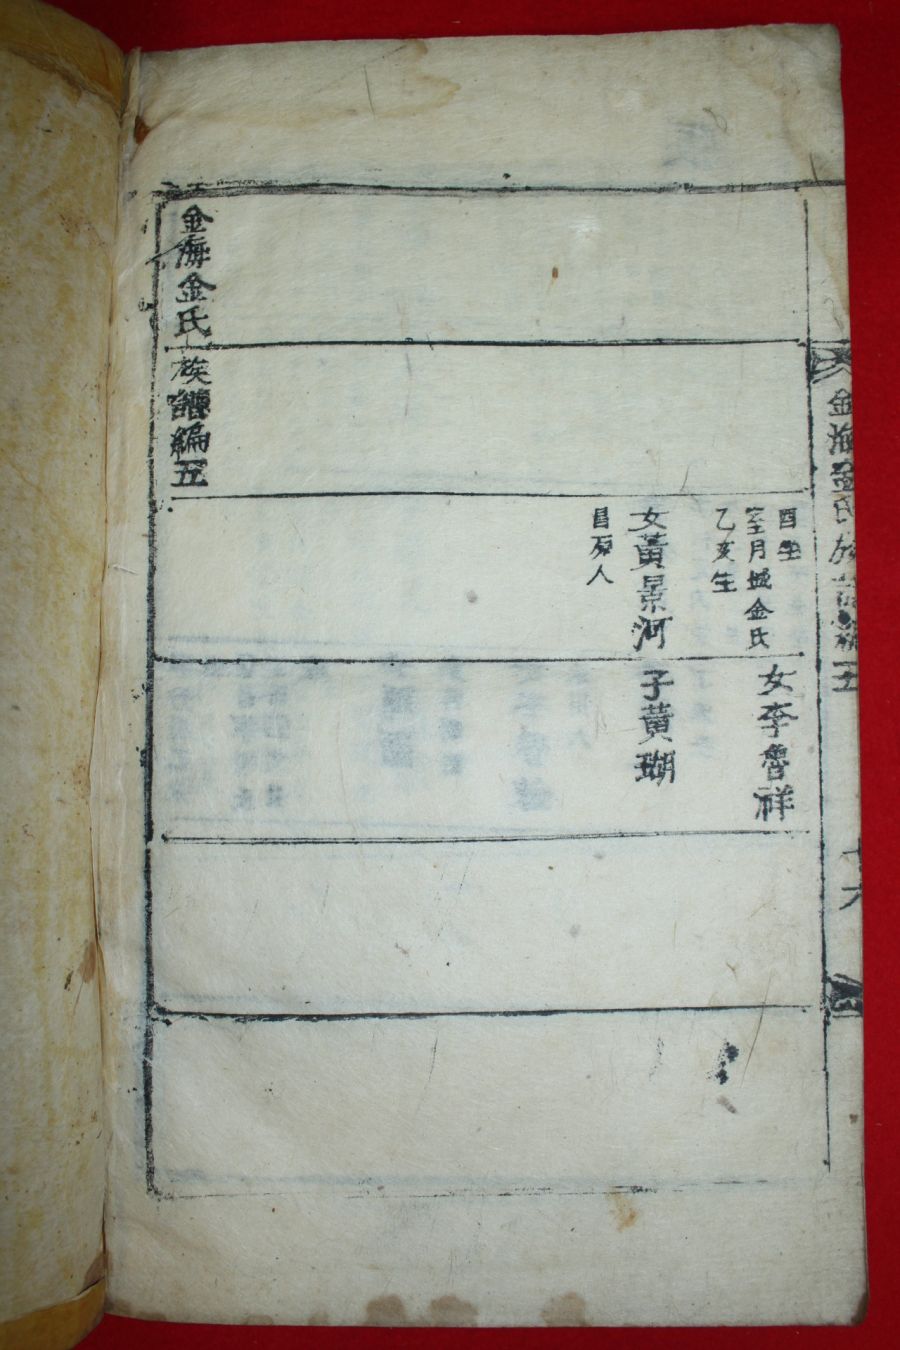 金海金氏族譜編五
酉生
室月城金氏
乙亥生
女李魯祥
女黃景河
昌原人
子黃瑚
金海金氏族譜編五